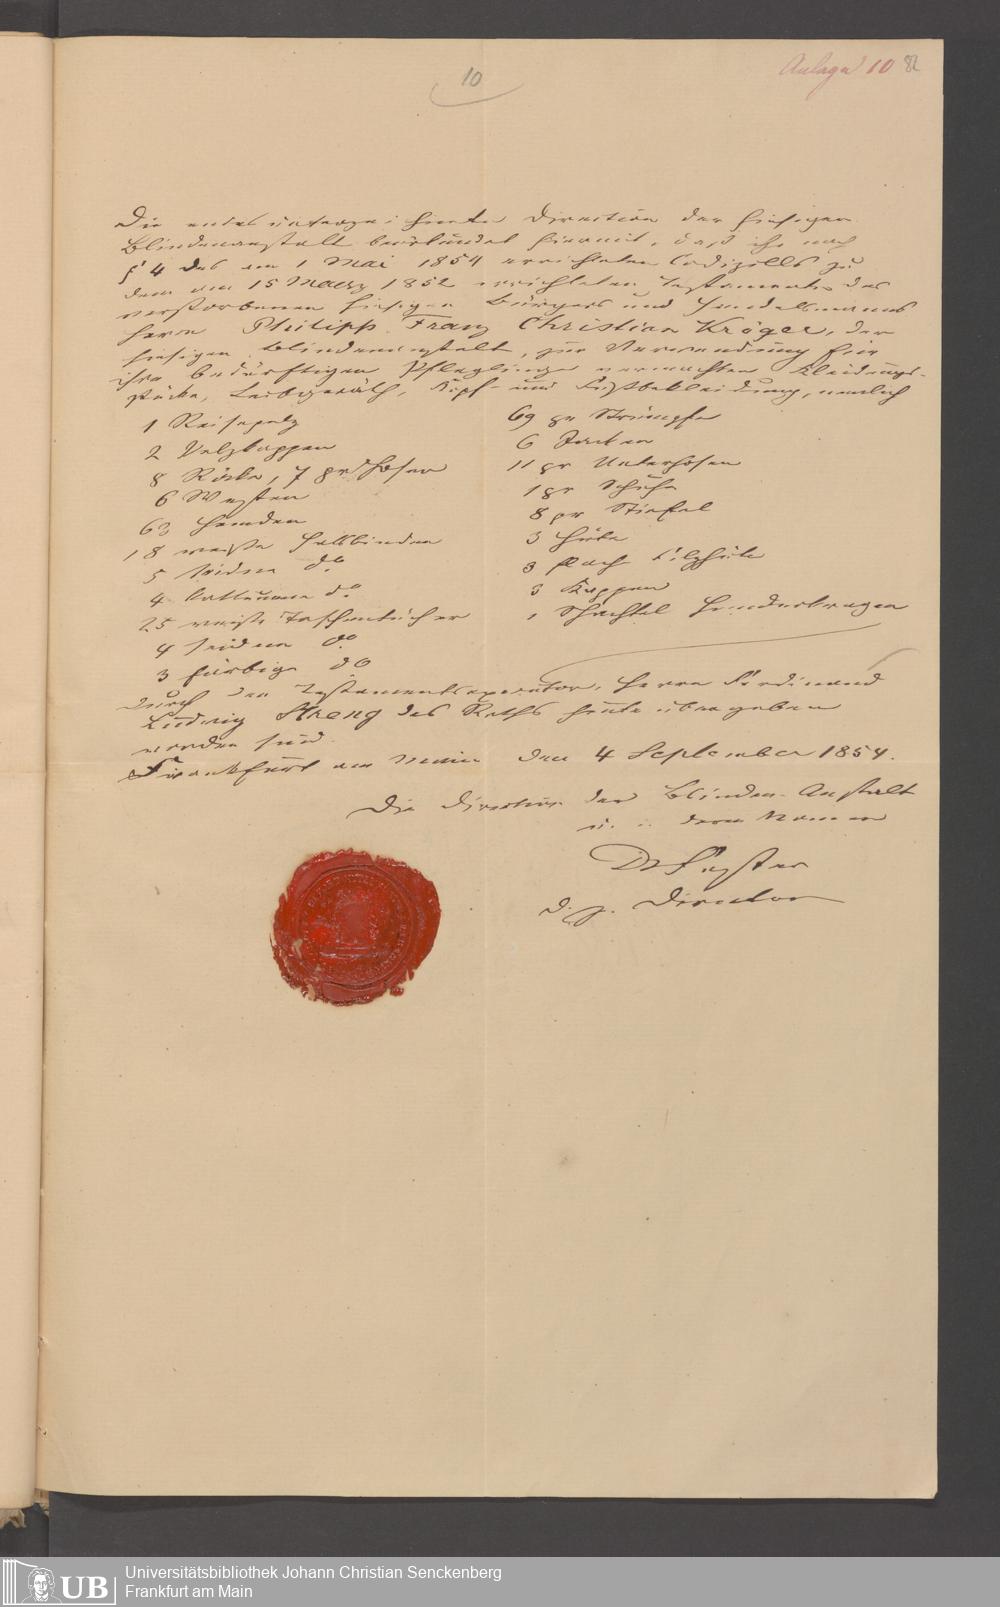 10
Anlage 10 82
Die endesunterzeichnete Direction der hiesigen
Blindenanstalt beurkundet hiermit, daß ihr nach
§ 4 des am 1 Mai 1854 errichteten Codizills zu
dem am 15 Maerz 1852 errichteten Testamente des
verstorbenen hiesigen Bürgers und Handelsmanns
Herrn Philipp Franz Christian Kröger, der
hiesigen Blindenanstalt, zur Verwendung für
ihre bedürftigen Pfleglinge vermachten Kleidungs-
stücke, Leibgeräth, Kopf- und Fußbekleidung, nemlich
1 Reisepelz
2 Pelzkappen
8 Röcke, 7 pr Hosen
6 Westen
63 Hemden
18 weiße Halsbinden
5 seidne do
4 cattunene do
25 weiße Taschentücher
4 seidene do
3 farbige do
69 pr Strümpfe
6 Jacken
11 pr Unterhosen
1 pr Schuhe
8 pr Stiefel
3 Hüte
3 flach Filzhüte
3 Kappen
1 Schachtel Hemdenkragen
durch den Testamentsexecutor, Herrn Ferdinand
Ludwig Streng des Raths heute übergeben
worden sind.
Frankfurt am Main den 4 September 1854.
Die Direction der Blinden-Anstalt
u. in deren Namen
Dr
d. z. Director
Universitätsbibliothek Johann Christian Senckenberg
Frankfurt am Main
UB